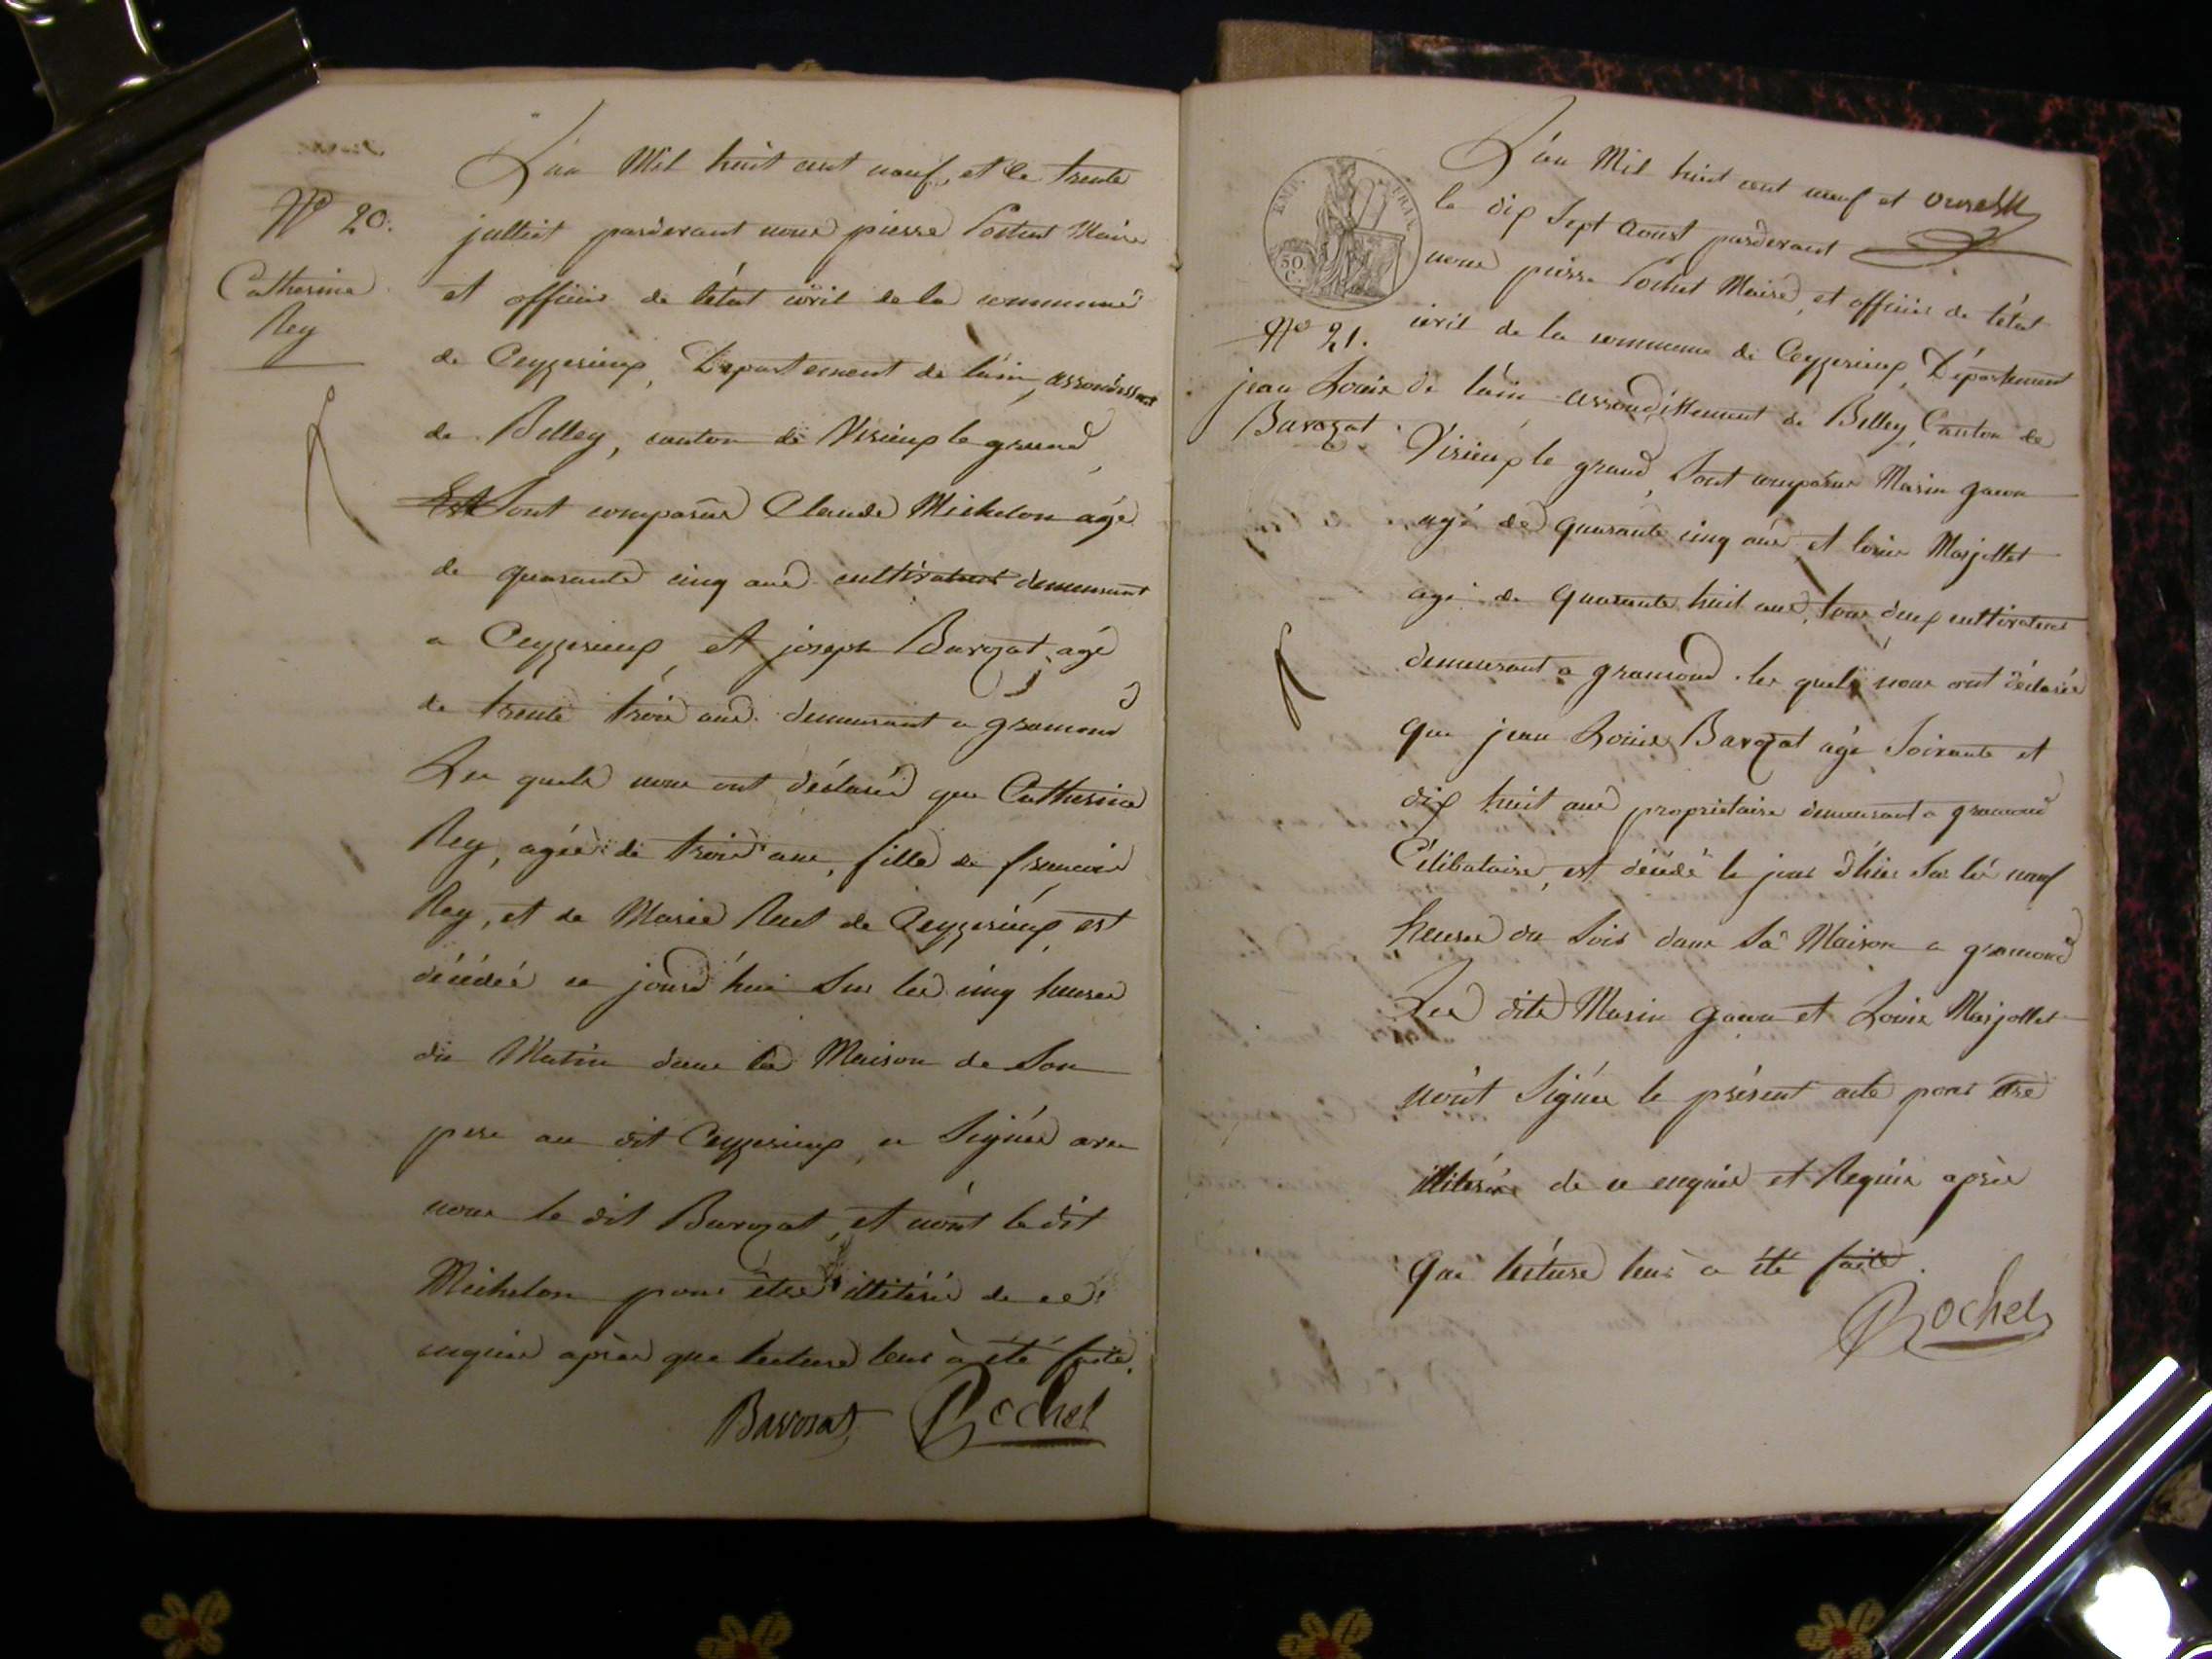 Nº 20.
Catherine
Rey
L'an Mil huit cent neuf, et le trente
julliet pardevant nous pierre Pochet Maire
et officier de l'état civil de la commune
de Ceyzerieux, Département de l'ain, arrondissement
de Belley, canton de Virieux le grand,
Est Sont comparus Claude Michelon agé
de quarante cinq ans cultivateur demeurant
a Ceyzerieux, et joseph Barozat agé
de trente trois ans demeurant a gramond
Les quels nous ont déclarés que Catherine
Rey, agée de trois ans, fille de francois
Rey, et de Marie de Ceyzerieux, est
décédée ce jourd'hui Sur les cinq heures
du Matin dans la Maison de Son
pere au dit Ceyzerieux, a Signée avec
nous le dit Barozat, et nont le dit
Michelon pour être illitéré de ce
enquis après que lecture leur à été faite.
Barozat Pochet
EMP. FRAN.
50 C.
Nº 21.
jean Louis
Barozat.
L'an Mil huit cent neuf et
le dix Sept aoust pardevant
nous pierre Pochet Maire, et officier de l'état
civil de la commune de Ceyzerieux, Département
de l'ain arrondissement de Belley, Canton de
Virieux le grand, Sont comparus Marin
agé de quarante cinq ans, et louis Marjollet
agé de quarante huit ans, tous deux cultivateurs
demeurant a gramond. les quels nous ont déclarés
que jean Louis Barozat agé Soixante et
dix huit ans propriétaire demeurant a gramond
Célibataire, est décédé le jour d'hier Sur les neuf
heures du Soir dans Sa Maison a gramond
Les dits Marin et Louis Marjollet
nont Signée le présent acte pour être
illitérés de ce enquis et Requis après
que lecture leur a été faite.
Pochet